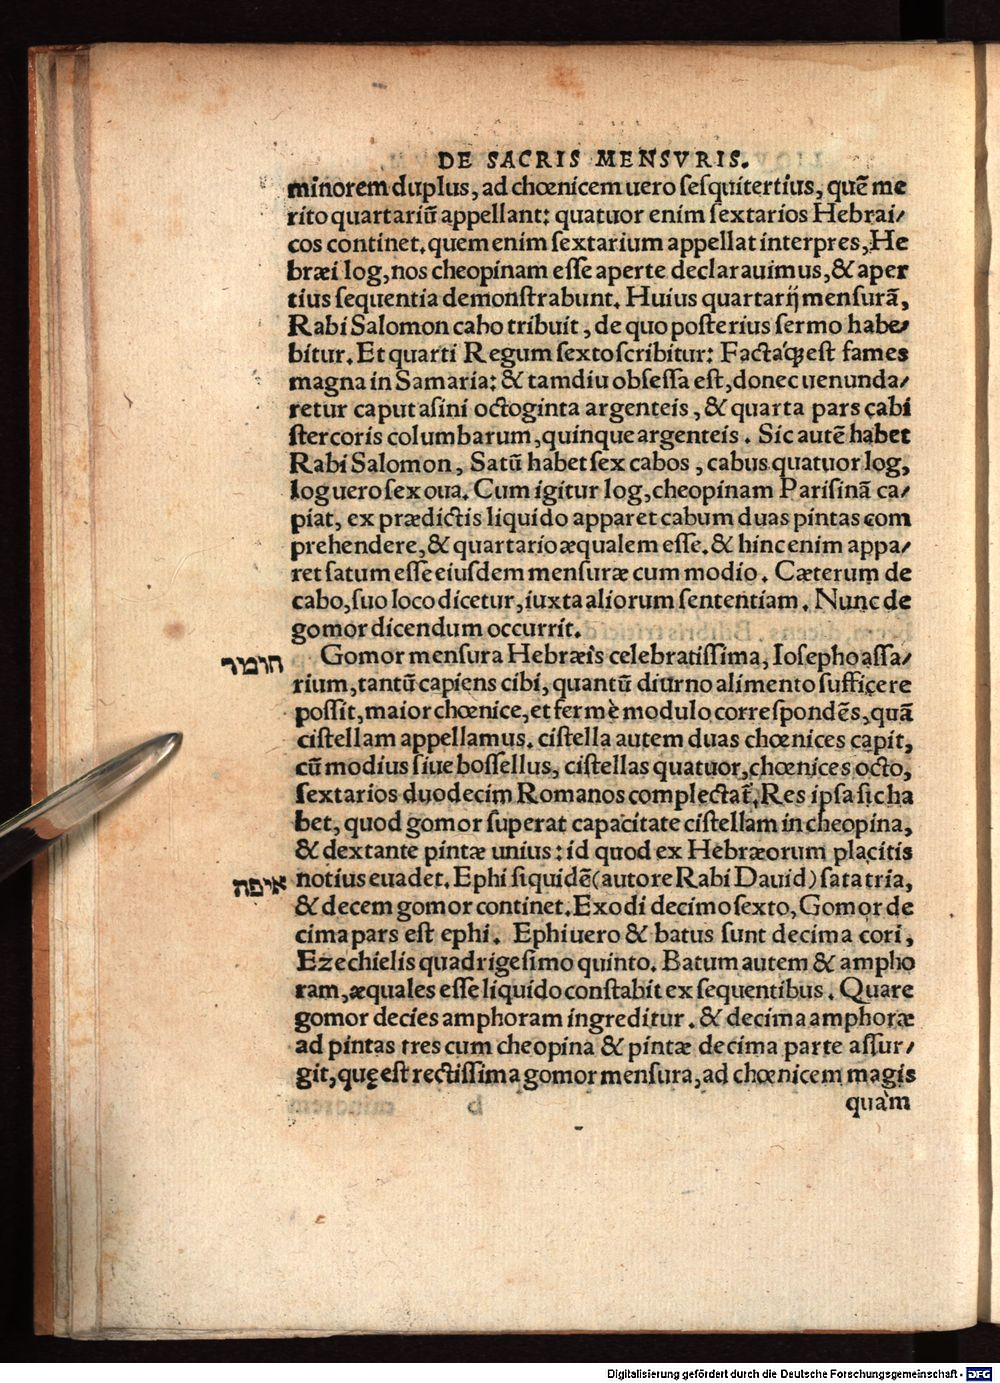 DE SACRIS MENSVRIS.
minorem duplus, ad chœnicem uero sesquitertius, quē me
rito quartariū appellant: quatuor enim sextarios Hebrai/
cos continet. quem enim sextarium appellat interpres, He
bræi log, nos cheopinam esse aperte declarauimus, & aper
tius sequentia demonstrabunt. Huius quartarij mensurā,
Rabi Salomon cabo tribuit, de quo posterius sermo habe/
bitur. Et quarti Regum sexto scribitur: Factaq́ꝫ est fames
magna in Samaria: & tamdiu obsessa est, donec uenunda/
retur caput asini octoginta argenteis, & quarta pars cabi
stercoris columbarum, quinque argenteis. Sic autē habet
Rabi Salomon, Satū habet sex cabos, cabus quatuor log,
log uero sex oua. Cum igitur log, cheopinam Parisinā ca/
piat, ex prædictis liquido apparet cabum duas pintas com
prehendere, & quartario æqualem esse. & hinc enim appa/
ret satum esse eiusdem mensuræ cum modio. Cæterum de
cabo, suo loco dicetur, iuxta aliorum sententiam. Nunc de
gomor dicendum occurrit.
חומור Gomor mensura Hebræis celebratissima, Iosepho assa/
rium, tantū capiens cibi, quantū diurno alimento sufficere
possit, maior chœnice, et fermè modulo correspondēs, quā
cistellam appellamus. cistella autem duas chœnices capit,
cū modius siue bossellus, cistellas quatuor, chœnices octo,
sextarios duodecim Romanos complectat̄. Res ipsa sic ha
bet, quod gomor superat capacitate cistellam in cheopina,
& dextante pintæ unius: id quod ex Hebræorum placitis
איפה notius euadet. Ephi siquidē (autore Rabi Dauid) sata tria,
& decem gomor continet. Exodi decimo sexto, Gomor de
cima pars est ephi. Ephi uero & batus sunt decima cori,
Ezechielis quadrigesimo quinto. Batum autem & ampho
ram, æquales esse liquido constabit ex sequentibus. Quare
gomor decies amphoram ingreditur. & decima amphoræ
ad pintas tres cum cheopina & pintæ decima parte assur/
git, quę est rectissima gomor mensura, ad chœnicem magis
quàm
Digitalisierung gefördert durch die Deutsche Forschungsgemeinschaft - DFG